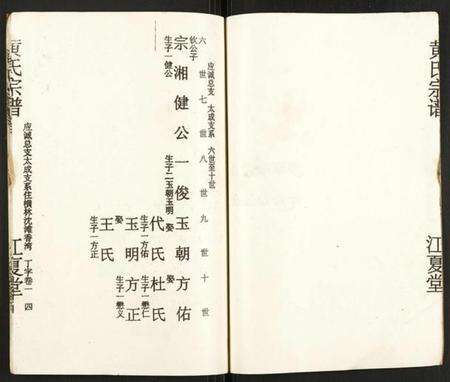 黄氏宗谱
江夏堂
应诚总支 太成支系 六世至十世
六世 七世 八世 九世 十世
钦公子
宗湘健公一俊玉朝方佑
生子一健公
生子二玉朝玉明
娶
代氏杜氏
生子一方佑
生子一懋仁
玉明方正
娶
王氏
生子一方正
生子一懋义
黄氏宗谱
应诚总支太成支系住横林沈滩香湾 丁字卷一 四
江夏堂